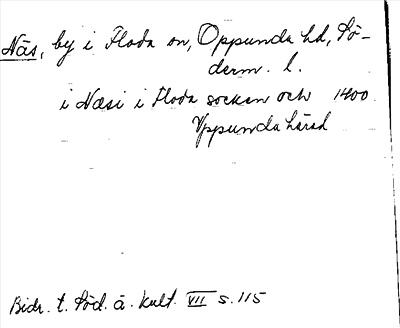 Näs, by i Floda sn, Oppunda hd, Sö-
derm. l.
i Næsi i Floda socken och 1400
Yppunda härad
Bidr. t. Söd. ä. kult. VII s. 115